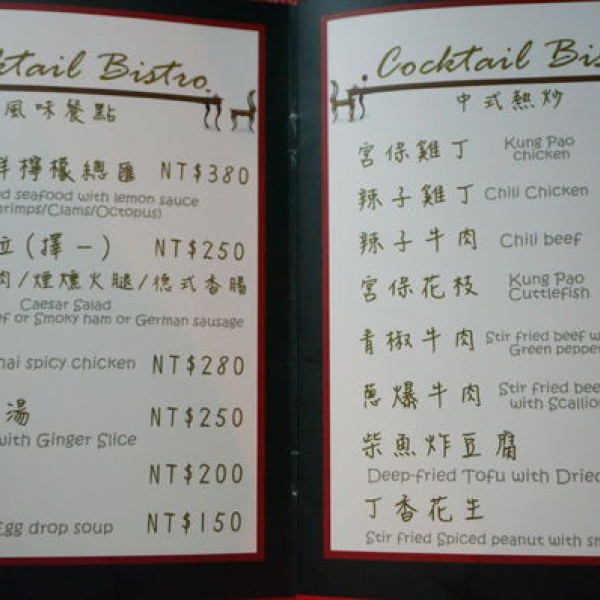 Bistro
風味餐點
檸檬總匯 NT$380
seafood with lemon sauce
/Clams/Octopus)
(擇一) NT$250
肉/煙燻火腿/德式香腸
Caesar Salad
or Smoky ham or German sausage
spicy chicken NT$280
湯 NT$250
with Ginger Slice
NT$200
Egg drop soup NT$150
Cocktail
中式熱炒
宮保雞丁 Kung Pao
chicken
辣子雞丁 Chili Chicken
辣子牛肉 Chili beef
宮保花枝 Kung Pao
Cuttlefish
青椒牛肉 Stir fried beef
Green pepper
蔥爆牛肉 Stir fried
with
柴魚炸豆腐
Deep-fried Tofu with Dried
丁香花生
Stir fried Spiced peanut with